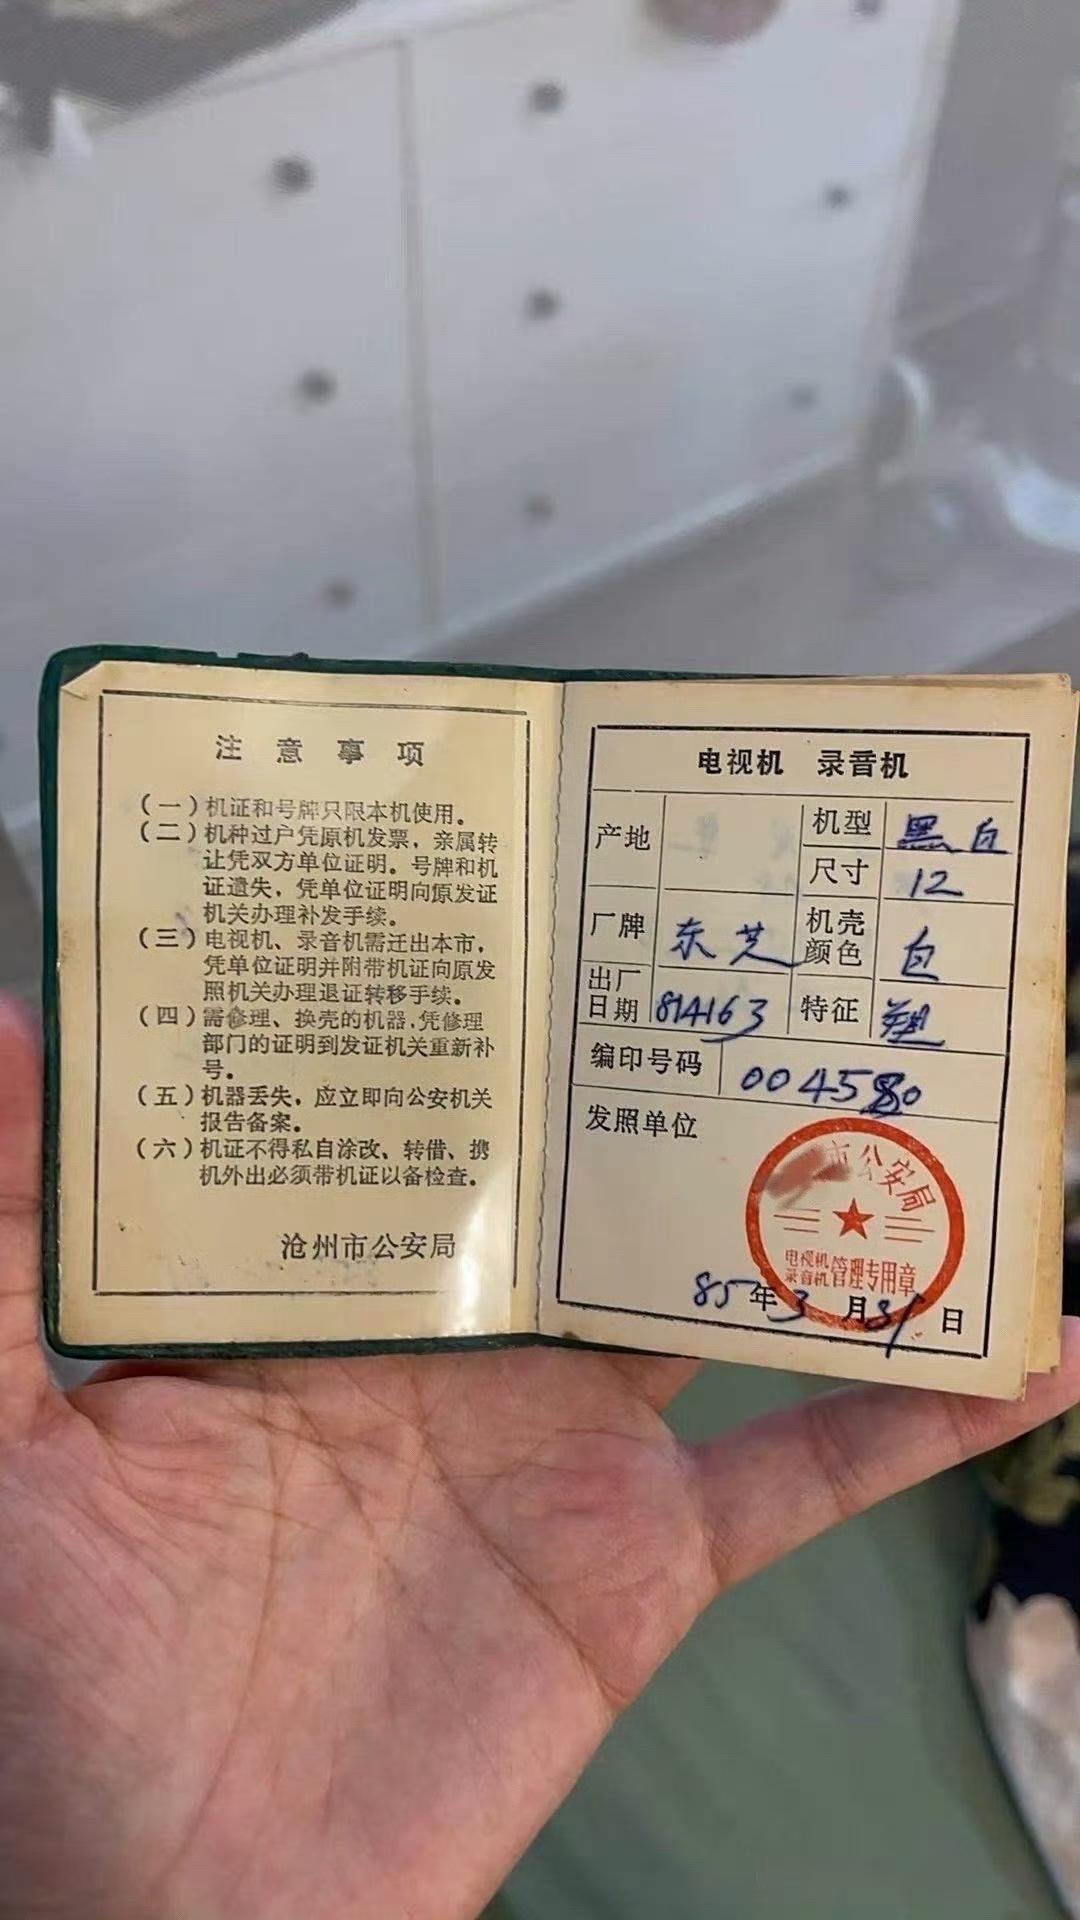 注意事项
（一）机证和号牌只限本机使用。
（二）机种过户凭原机发票，亲属转
让凭双方单位证明。号牌和机
证遗失，凭单位证明向原发证
机关办理补发手续。
（三）电视机、录音机需迁出本市，
凭单位证明并附带机证向原发
照机关办理退证转移手续。
（四）需修理、换壳的机器，凭修理
部门的证明到发证机关重新补
号。
（五）机器丢失，应立即向公安机关
报告备案。
（六）机证不得私自涂改、转借、携
机外出必须带机证以备检查。
沧州市公安局
电视机 录音机
产地
机型 黑白
尺寸 12
厂牌 东芝
机壳颜色 白
出厂日期 814163
特征
编印号码 004580
发照单位
市公安局
电视机
录音机
管理专用章
85年3月31日